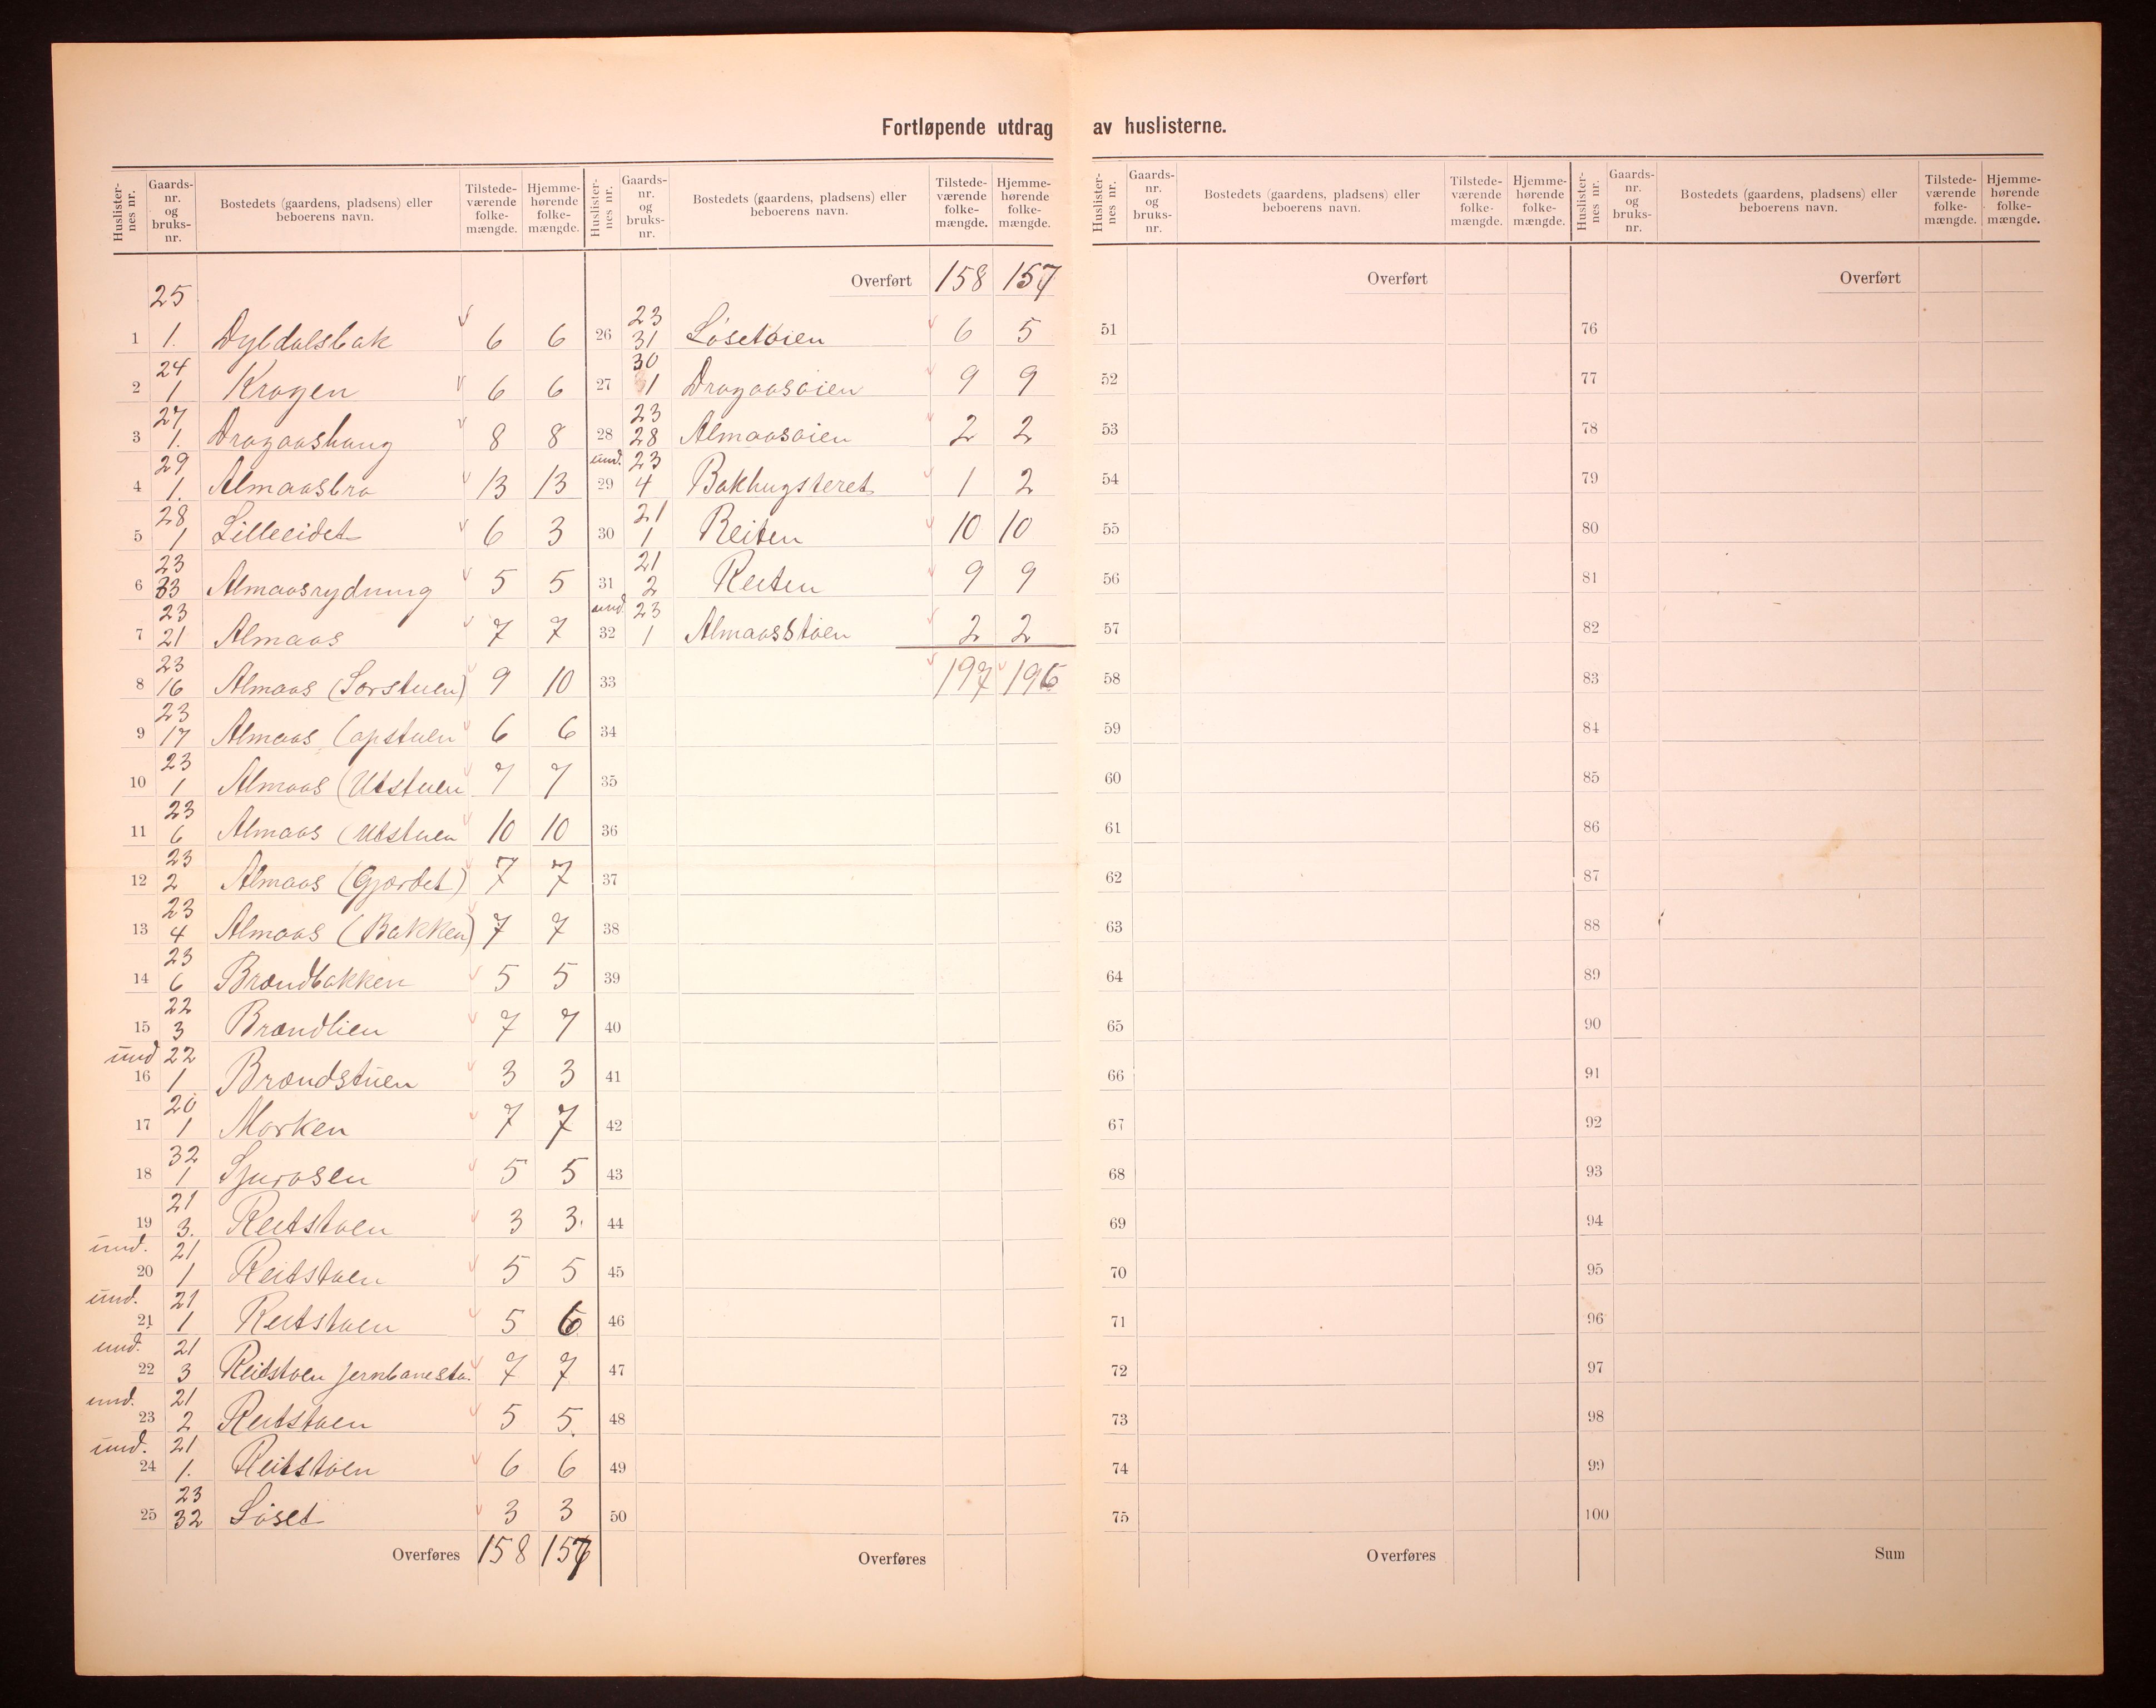 Fortløpende utdrag av huslisterne.
Huslister-nes nr. Gaards-nr. og bruks-nr. Bostedets (gaardens, pladsens) eller beboerens navn. Tilstede-værende folke-mængde. Hjemme-hørende folke-mængde.
25
1 1. Dyldalsbak 6 6
24
2 1 Krogen 6 6
27
3 1. Dragaashaug 8 8
29
4 1. Almaasbro 13 13
28
5 1 Lilleeidet 6 3
23
6 33 Almaasrydning 5 5
23
7 21 Almaas 7 7
23
8 16 Almaas (Sorstuen) 9 10
23
9 17 Almaas (opstuen 6 6
23
10 1 Almaas (Utstuen 7 7
23
11 6 Almaas (Utstuen 10 10
23
12 2 Almaas (Gjærdet) 7 7
23
13 4 Almaas (Bakken) 7 7
23
14 6 Brændbakken 5 5
22
15 3 Brændlien 7 7
und 22
16 1 Brændstuen 3 3
20
17 1 Morken 7 7
32
18 1 Sjurosen 5 5
21
19 3. Reitstøen 3 3.
und. 21
20 1 Reitstøen 5 5
und. 21
21 1 Reitstøen 5 6
und. 21
22 3 Reitstøen jernbanesta. 7 7
und. 21
23 2 Reitstøen 5 5.
und. 21
24 1. Reitstøen 6 6
23
25 32 Løset 3 3
Overføres 158 157
Huslister-nes nr. Gaards-nr. og bruks-nr. Bostedets (gaardens, pladsens) eller beboerens navn. Tilstede-værende folke-mængde. Hjemme-hørende folke-mængde.
Overført 158 157
23
26 31 Løsetøien 6 5
30
27 1 Dragaasøien 9 9
23
28 28 Almaasøien 2 2
und. 23
29 4 Bakhugsteret 1 2
21
30 1 Reiten 10 10
21
31 2 Reiten 9 9
und. 23
32 1 Almaasstøen 2 2
33 197 196
34
35
36
37
38
39
40
41
42
43
44
45
46
47
48
49
50
Overføres
Huslister-nes nr. Gaards-nr. og bruks-nr. Bostedets (gaardens, pladsens) eller beboerens navn. Tilstede-værende folke-mængde. Hjemme-hørende folke-mængde.
Overført
51
52
53
54
55
56
57
58
59
60
61
62
63
64
65
66
67
68
69
70
71
72
73
74
75
Overføres
Huslister-nes nr. Gaards-nr. og bruks-nr. Bostedets (gaardens, pladsens) eller beboerens navn. Tilstede-værende folke-mængde. Hjemme-hørende folke-mængde.
Overført
76
77
78
79
80
81
82
83
84
85
86
87
88
89
90
91
92
93
94
95
96
97
98
99
100
Sum